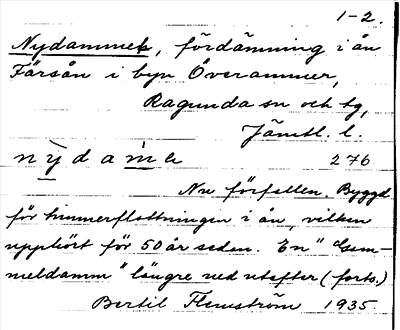 1-2.
Nydammen, fördämning i ån
Färsån i byn Överammer,
Ragunda sn och tg,
Jämtl. l.
nỳdam̀e 276
Nu förfallen. Byggd
för timmerflottningen i ån, vilken
upphört för 50 år sedan. En "Gam-
meldamm" längre ned utefter (forts.)
Bertil Flemström 1935.